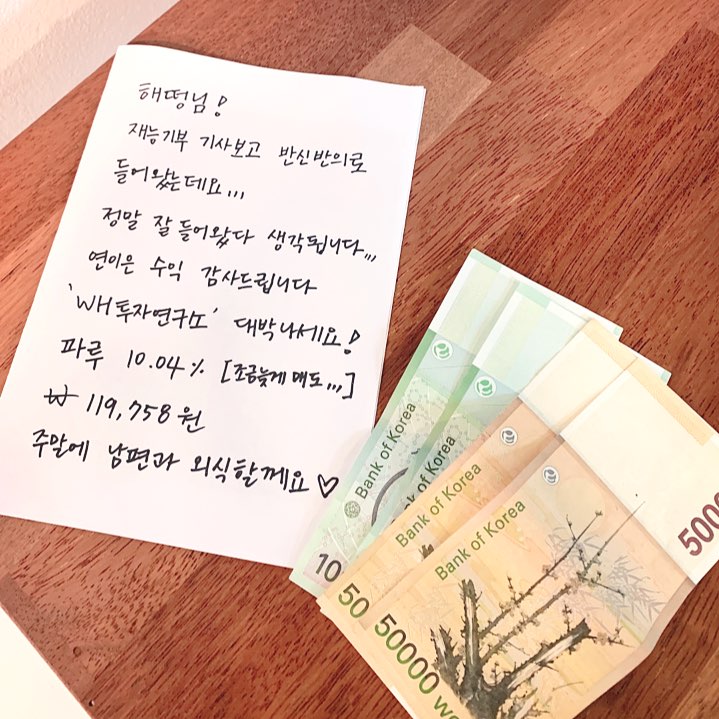 해떵님!
재능기부 기사보고 반신반의로
들어왔는데요,,,
정말 잘 들어왔다 생각됩니다,,,
연이은 수익 감사드립니다
'WH투자연구소' 대박나세요!
파루 10.04% [조금늦게 매도,,,]
₩ 119,758원
주말에 남편과 외식할께요♡
Bank of Korea
10
Bank of Korea
Bank of Korea
50
Bank of Korea
5000
50000 wo